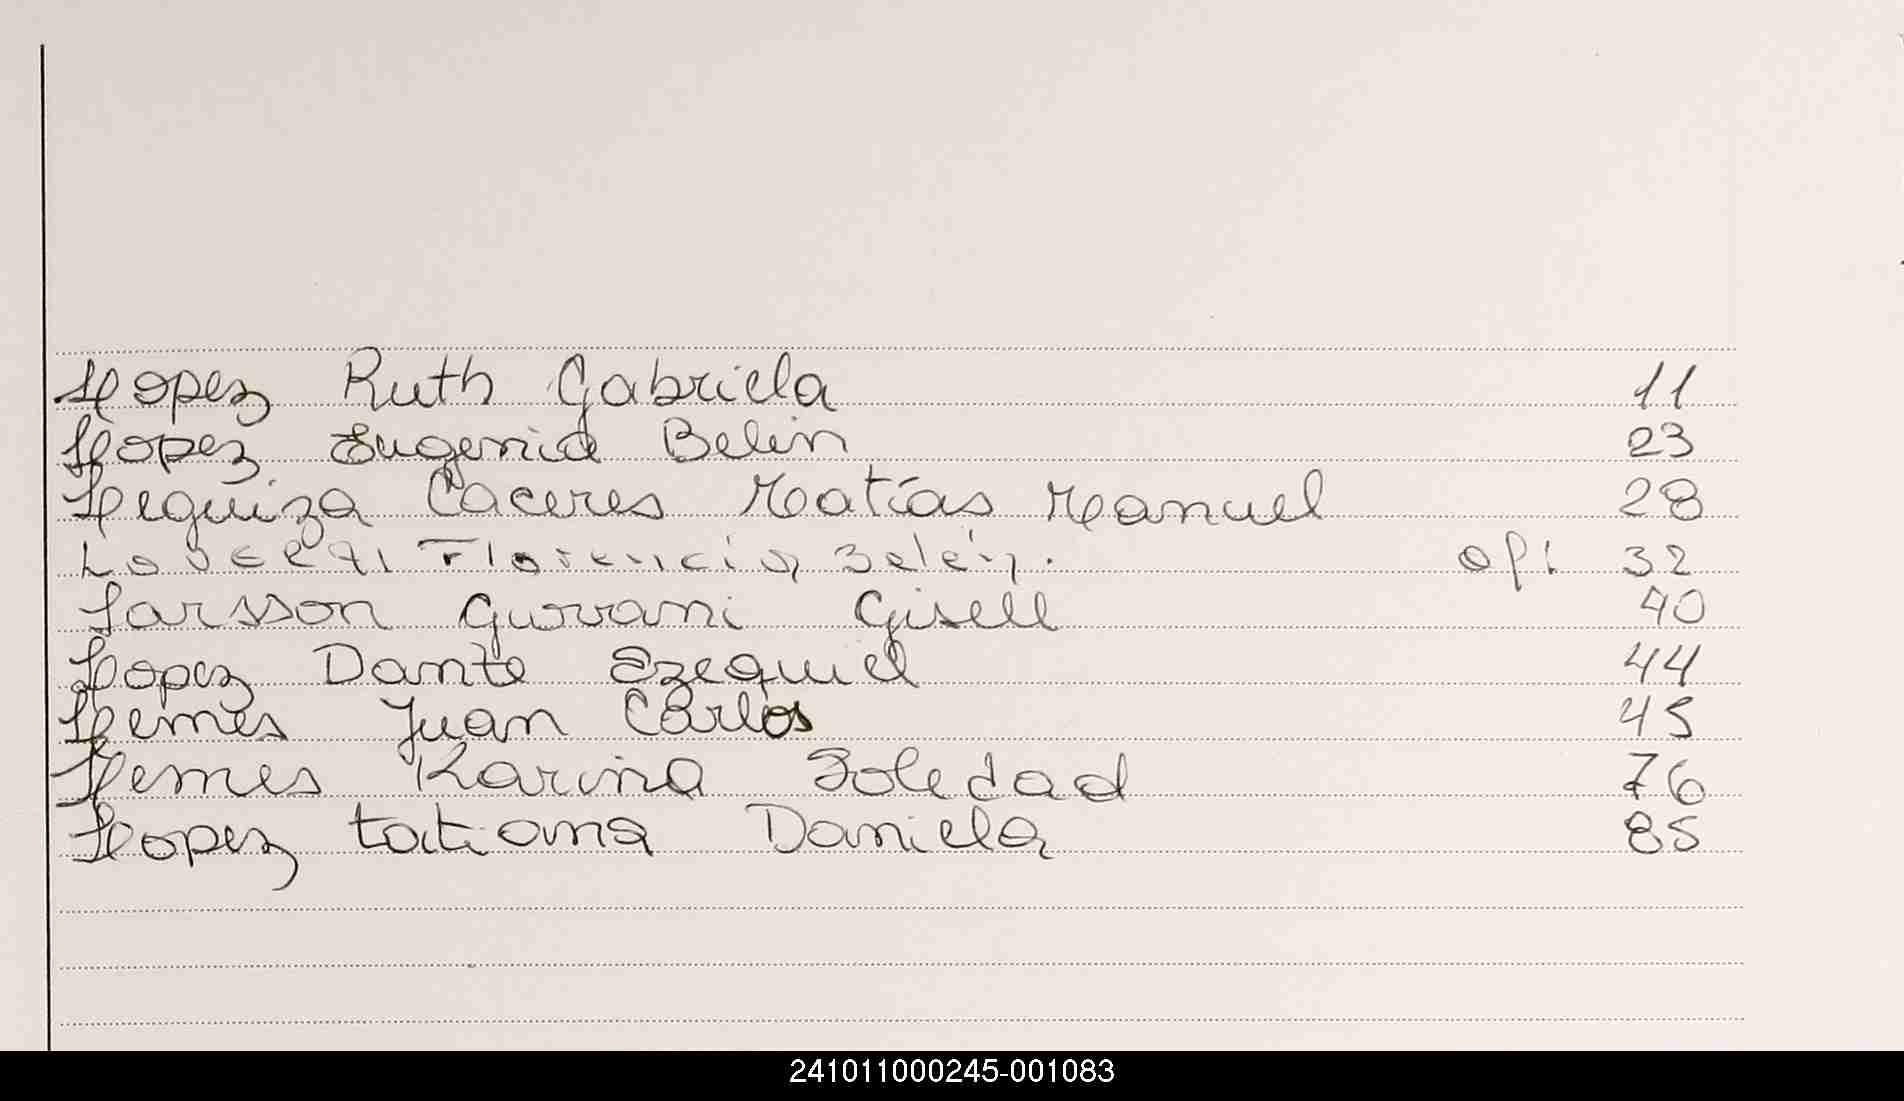 Lopez Ruth Gabriela 11
Lopez Eugenia Belen 23
Leguiza Caceres Matías Manuel 28
Florencia Belén. 32
Larsson Giovani Gisell 40
Lopez Dante Ezequiel 44
Lemes Juan Carlos 45
Lemes Karina Soledad 76
Lopez tatiana Daniela 85
241011000245-001083